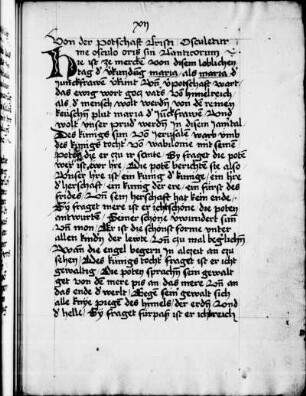 xvj
Von der Potschaft Cristi Osculetur
me osculo oris sui Canticorum
Hie ist ze mercke von disem loblichen
tag d' kundug maria als maria d'
junckfrawe kunt von potschaft wart
das ewig wort gotz vat's von himelreich
als d' mensch wolt werden von de reinen
keuschen plut maria d' junckfrawe vnd
wolt vnser prud' werden in disem jamtal
Des kunigs sun von Jerusale warb vmb
des kunigs tocht' von babilonie mit seinen
poten die er zu ir sante Sy fraget die pote
wer ist ewr h're Die pote berichte sie also
Vnser h're ist ein kunig d' kunige ein h're
d' herschaft ein kunig der ere ein furst des
frides von sein herschaft hat kein ende
Sy fraget mere ist er icht schone die poten
antwurte Seiner schone v'wundert sun
von mon Er ist die schonst forme vnter
allen kinden der lewt
Wan die engel begern in alczeit an zu
sehen Des kunigs tocht' fraget ist er icht
gewaltig Die poten sprachen sein gewalt
get von dem mere pis an das mere von an
das ende d' werlt Gegen sein gewalt sich
alle knye piegen des himels der erden vnd
d' helle Sy fraget furpas ist er icht reich